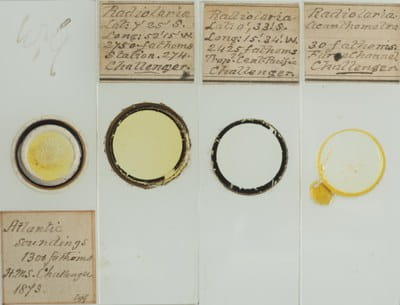 Atlantic
soundings
1300 fathoms
H.M.S. Challenger
1873.
Radiolaria
Lat: 7° 25' S.
Long: 152° 15' W.
2750 fathoms
Station. 274.
Challenger.
Radiolaria
Lat: 0°, 33' S.
Long: 15°. 34'. W.
2425 fathoms
Trop. Cent. Pacific
Challenger
Radiolaria
Acanthometra
30 fathoms
Channel
Challenger